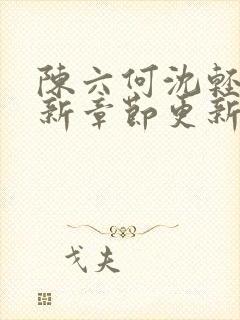 陳六何沈輕
新章節更新
戈夫